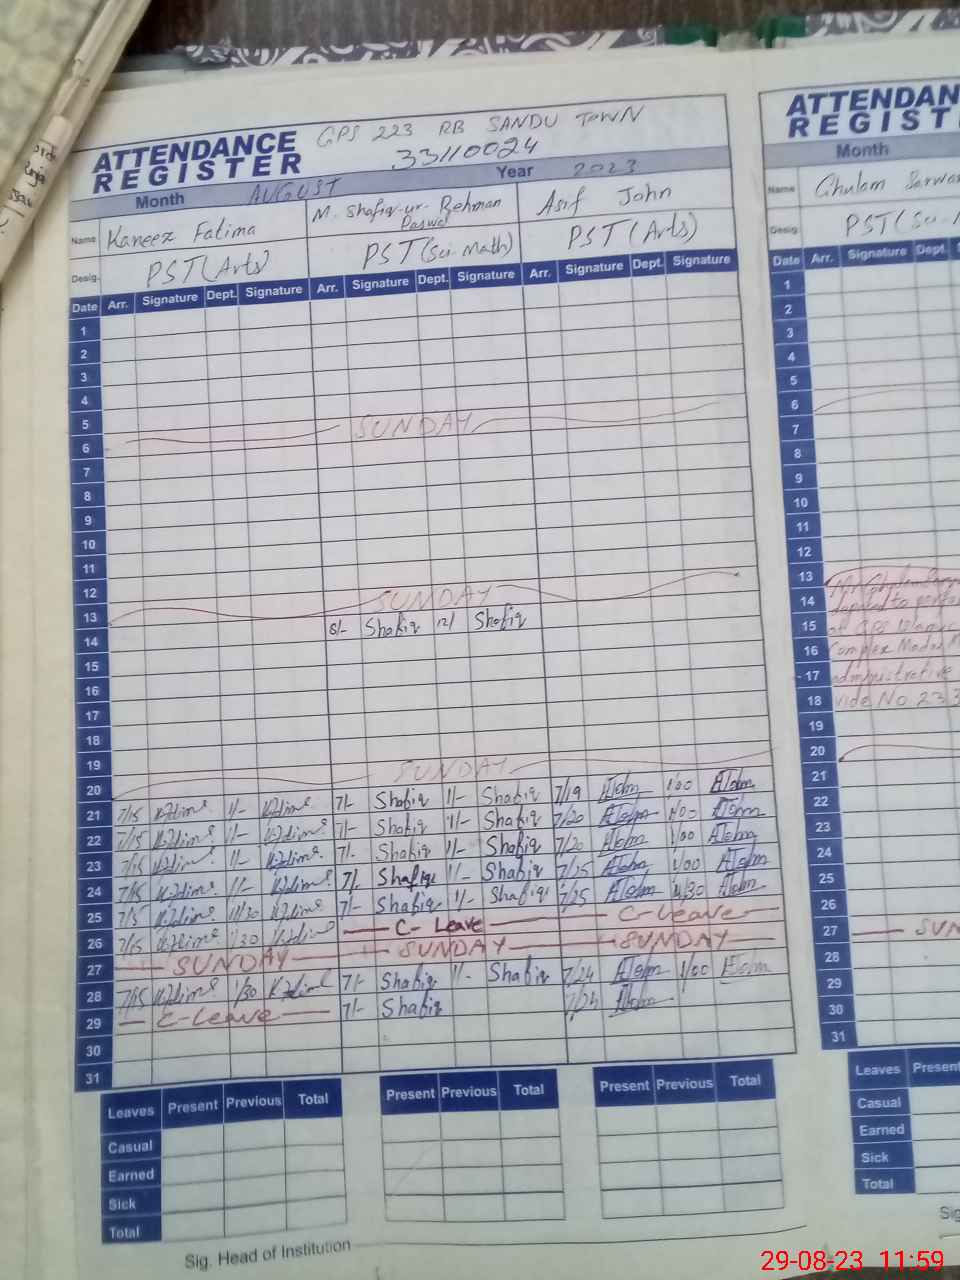 ATTENDANCE REGISTER
GPS 223 RB SANDU TOWN
33110024
Month AUGUST Year 2023
Name Kaneez Fatima M. Shafiq-ur-Rehman Asif Jahn
Desig. PST (Arts) PST (Sci-Math) PST (Arts)
Date Arr. Signature Dept. Signature Arr. Signature Dept. Signature Arr. Signature Dept. Signature
1
2
3
4
5
6 SUNDAY
7
8
9
10
11
12
13 SUNDAY
14 8/- Shafiq 12/ Shafiq
15
16
17
18
19
20 SUNDAY
21 7/15 1/- 7/- Shafiq 1/- Shafiq 7/19 1/00
22 7/15 1/- 7/- Shafiq 1/- Shafiq 7/20 1/00
23 7/15 1/- 7/- Shafiq 1/- Shafiq 7/20 1/00
24 7/15 1/- 7/- Shafiq 1/- Shafiq 7/25 1/00
25 7/15 11/30 7/- Shafiq 1/- Shafiq 7/25 11/30
26 7/15 1/30 C-Leave C-Leave
27 SUNDAY SUNDAY SUNDAY
28 7/15 1/30 7/- Shafiq 1/- Shafiq 7/24 1/00
29 C-Leave 7/- Shafiq 7/24
30
31
Leaves Present Previous Total Present Previous Total Present Previous Total
Casual
Earned
Sick
Total
Sig. Head of Institution
ATTENDAN
REGIST
Month
Name Ghulam Sarwa
Desig. PST (Sci-
Date Arr. Signature Dept.
1
2
3
4
5
6
7
8
9
10
11
12
13
14
15
16 Complex
17 administrative
18 vide No 233
19
20
21
22
23
24
25
26
27 SUN
28
29
30
31
Leaves Present
Casual
Earned
Sick
Total
Sig
29-08-23 11:59